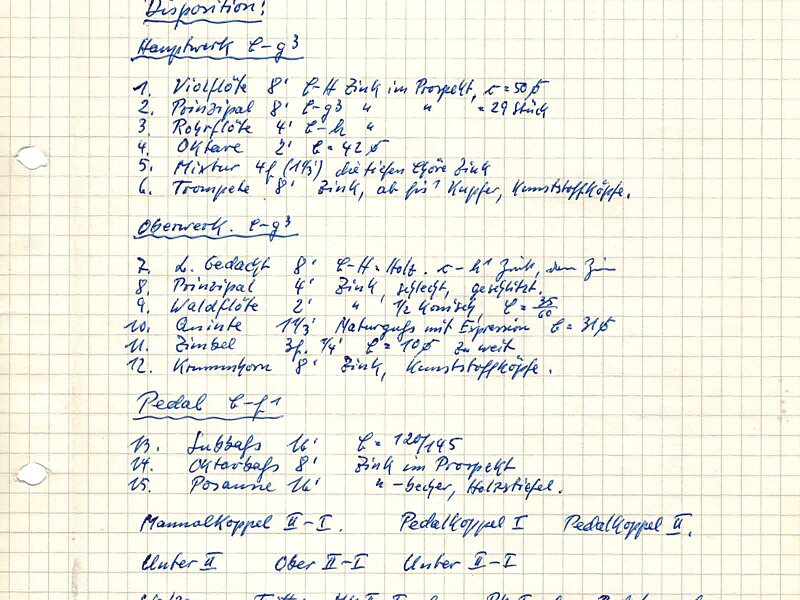 Disposition:
Hauptwerk C-g³
1. Violflöte 8' C-H Zink im Prospekt, c = 50 ∅
2. Prinzipal 8' C-g3 " " = 29 Stück
3. Rohrflöte 4' C-h "
4. Oktave 2' C = 42 ∅
5. Mixtur 4f (1⅓') die tiefen Chöre Zink
6. Trompete 8' Zink, ab fis¹ Kupfer, Kunststoffköpfe.
Oberwerk. C-g³
7. L. Gedackt 8' C-H = Holz. c-h¹ Zink, dann
8. Prinzipal 4' Zink, schlecht, geschlitzt.
9. Waldflöte 2' " 1/2 konisch, C = 35/60
10. Quinte 1⅓' Naturguss mit Expression C = 31 ∅
11. Zimbel 3f. 1/4' C = 10 ∅ zu weit
12. Krummhorn 8' Zink, Kunststoffköpfe.
Pedal C-f1
13. Subbaß 16' C = 120/145
14. Oktavbaß 8' Zink im Prospekt
15. Posaune 16' " -becher, Holzstiefel.
Manualkoppel II-I. Pedalkoppel I Pedalkoppel II.
Unter II Ober II-I Unter II-I